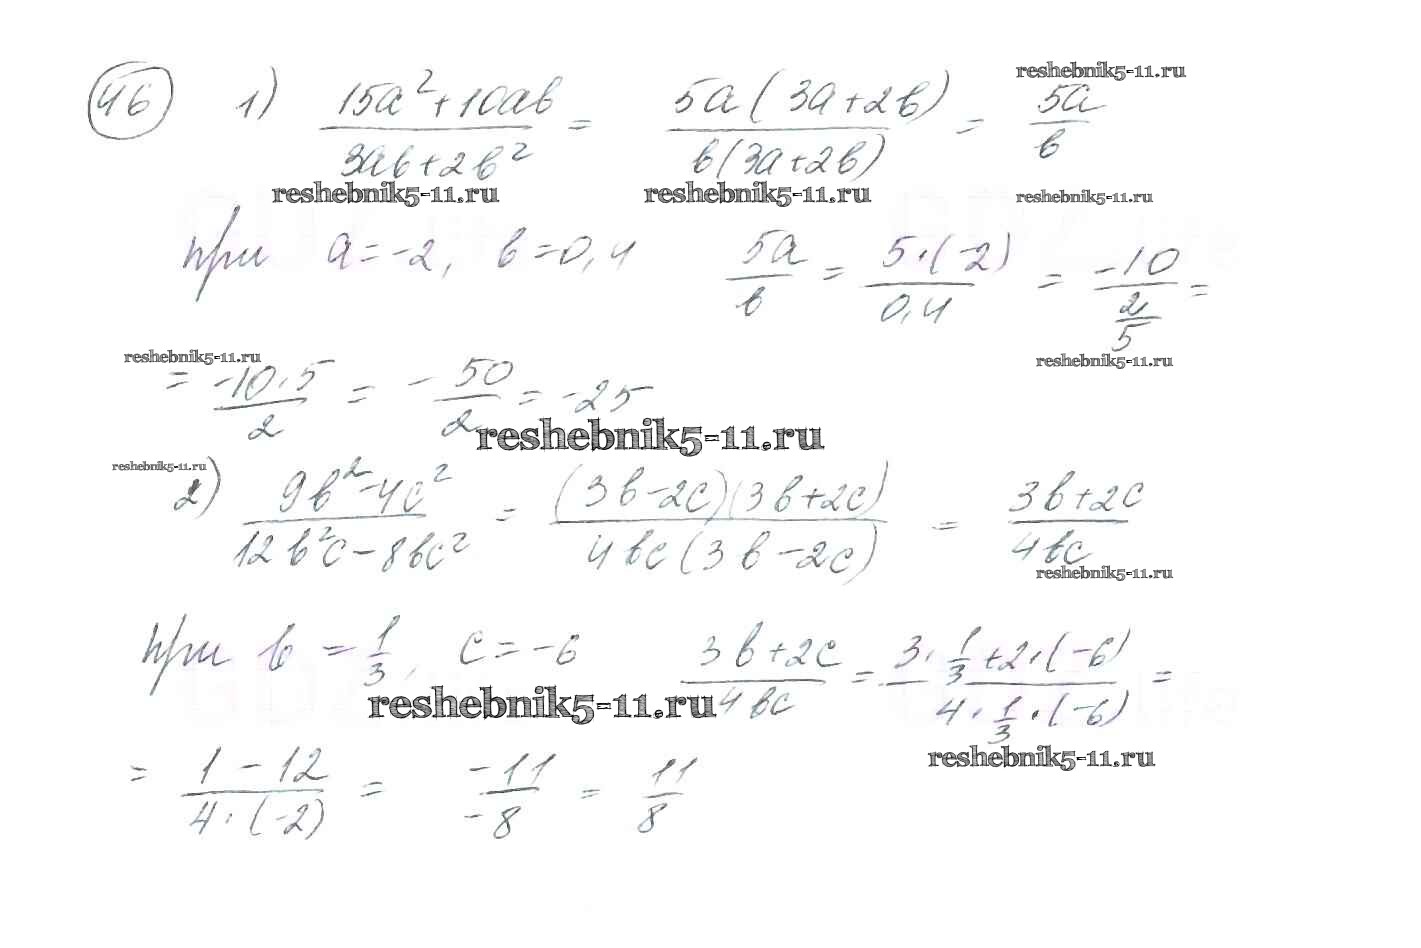 reshebnik5-11.ru
46) 1) (15a² + 10ab)/(3ab + 2b²) = 5a(3a + 2b)/b(3a + 2b) = 5a/b
reshebnik5-11.ru reshebnik5-11.ru reshebnik5-11.ru
при a = -2, b = 0,4 5a/b = 5·(-2)/0,4 = -10/(2/5) =
reshebnik5-11.ru reshebnik5-11.ru
= -10·5/2 = -50/2 = -25
reshebnik5-11.ru
reshebnik5-11.ru
2) (9b² - 4c²)/(12b²c - 8bc²) = (3b - 2c)(3b + 2c)/4bc(3b - 2c) = (3b + 2c)/4bc
reshebnik5-11.ru
при b = 1/3, c = -6 (3b + 2c)/4bc = (3·1/3 + 2·(-6))/(4·1/3·(-6)) =
reshebnik5-11.ru
reshebnik5-11.ru
= (1 - 12)/(4·(-2)) = -11/-8 = 11/8